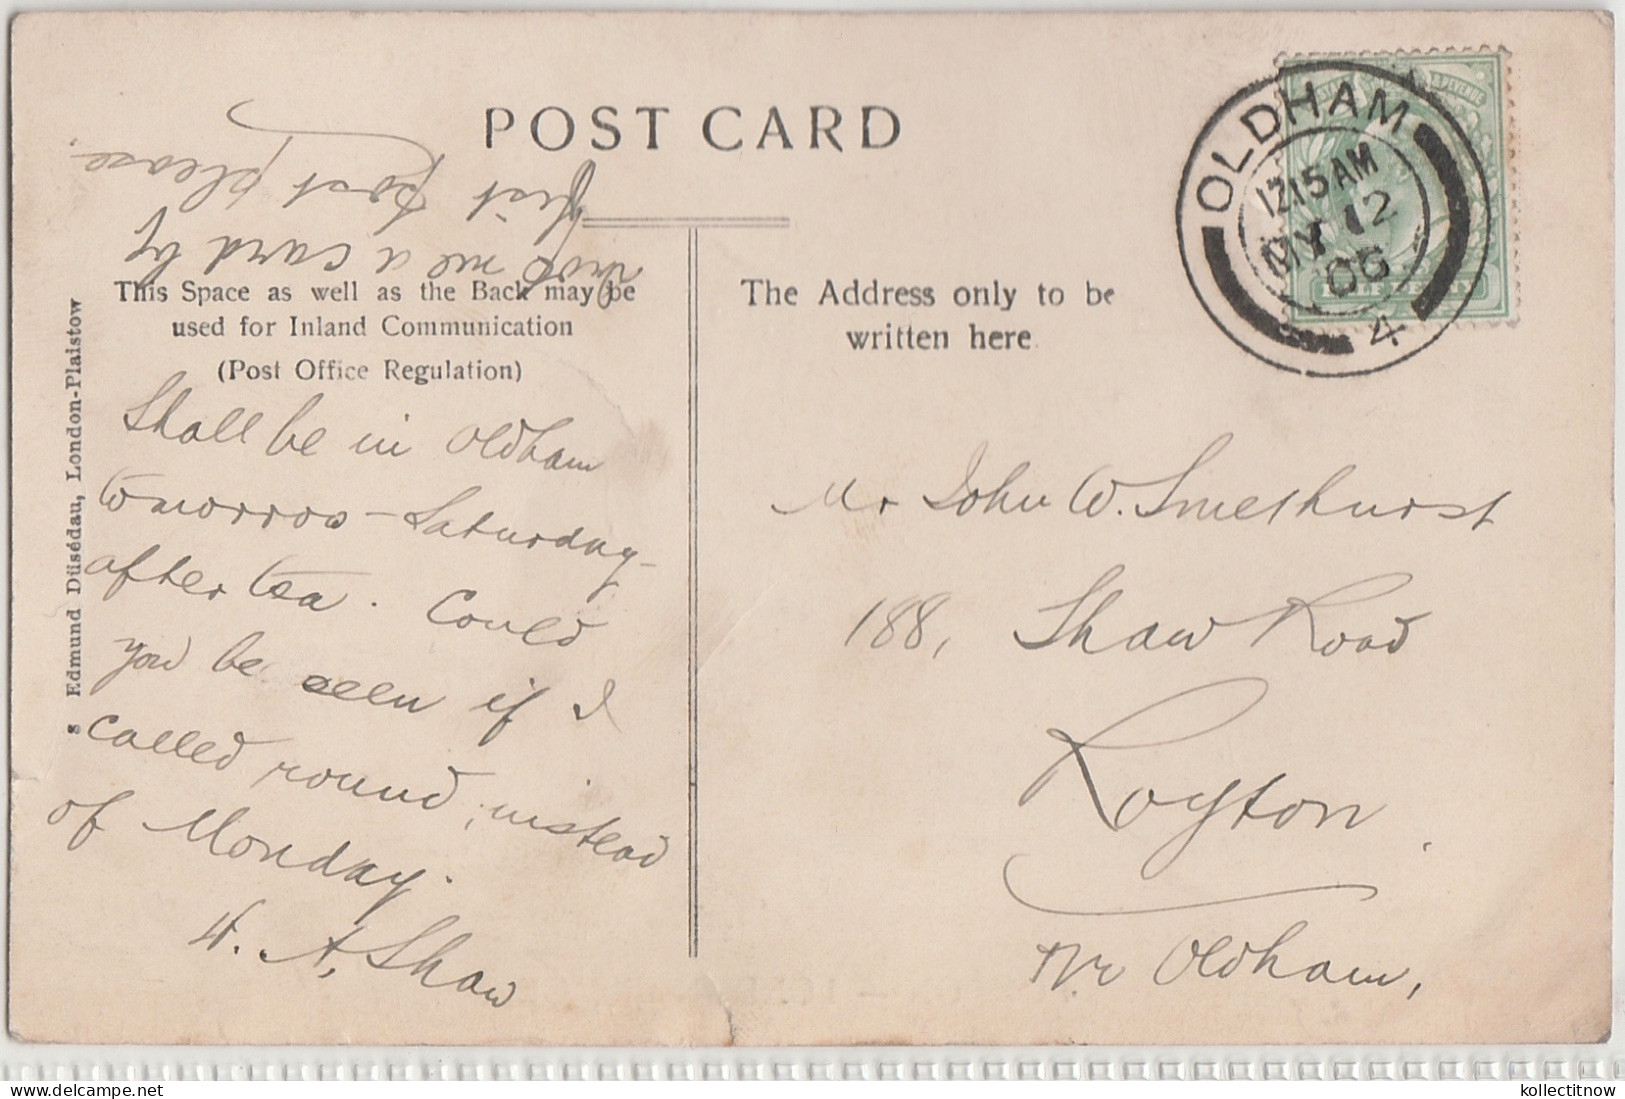 POST CARD
This Space as well as the Back may be
used for Inland Communication
(Post Office Regulation)
The Address only to be
written here
Shall be in Oldham
tomorrow - Saturday -
after tea. Could
you be seen if I
called round, instead
of Monday.
H. A. Shaw
me a card by
first post please.
Mr John W. Smethurst
188, Shaw Road
Royton.
Nr Oldham,
OLDHAM
12.15 AM
MY 12
06
4
& REVENUE
s Edmund Düsédau, London-Plaistow
kollectitnow